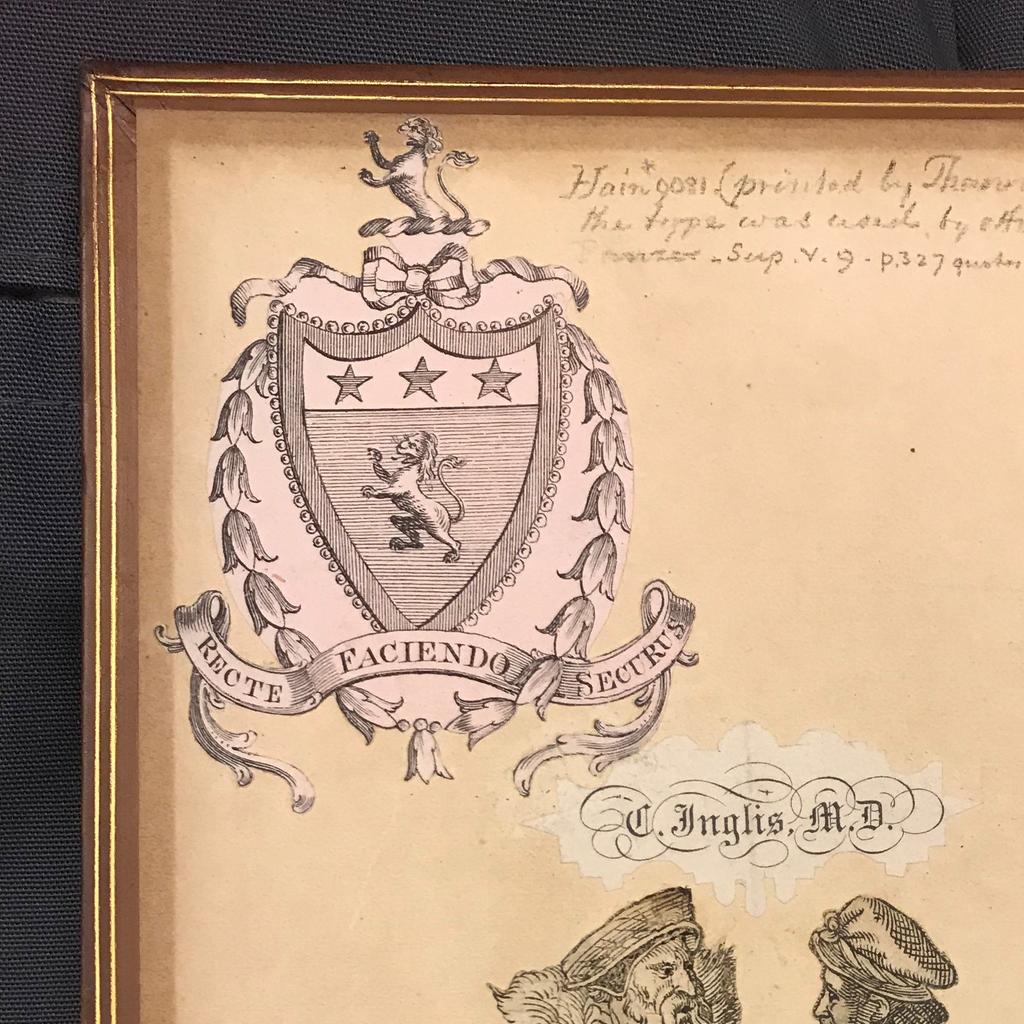 Hain* 9081 (printed by
the type was used by
Sup. V. 9 - p. 327 quotes
RECTE FACIENDO SECURUS
C. Inglis, M.D.